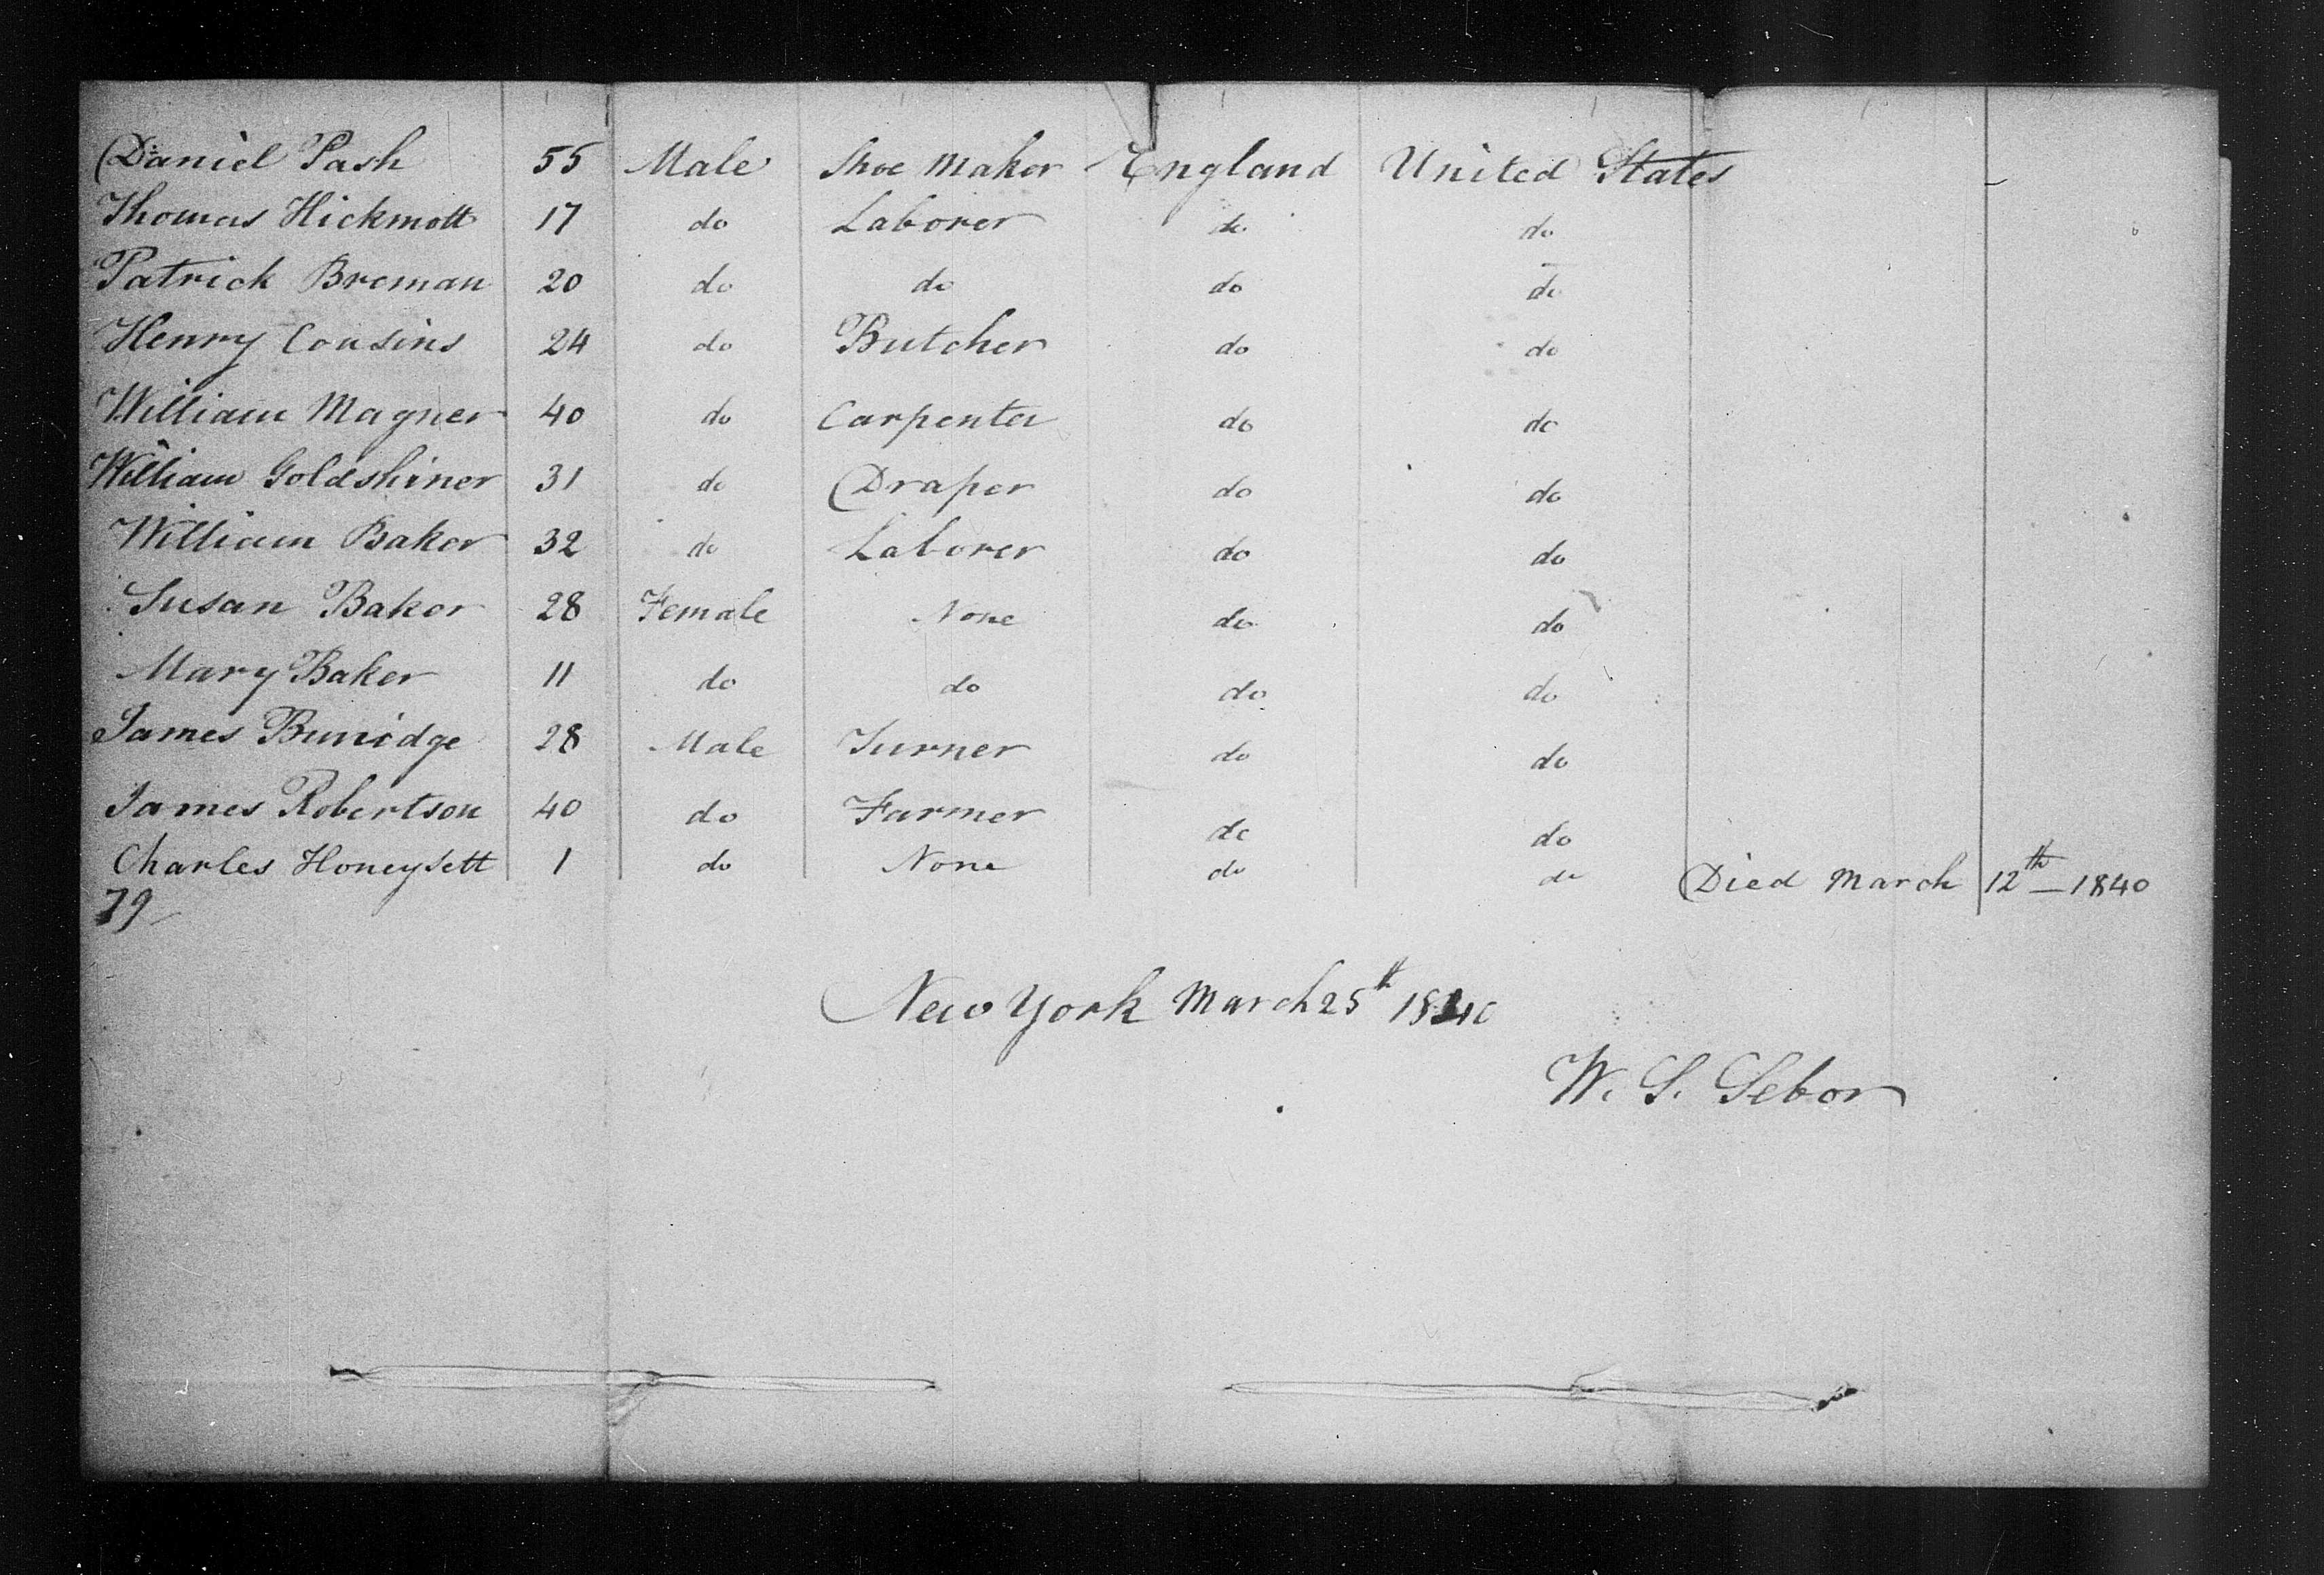 Daniel Pash 55 Male Shoe Maker England United States
Thomas Hickmott 17 do Laborer do do
Patrick Breman 20 do do do do
Henry Cousins 24 do Butcher do do
William Magner 40 do Carpenter do do
William Goldshiner 31 do Draper do do
William Baker 32 do Laborer do do
Susan Baker 28 Female None do do
Mary Baker 11 do do do do
James Burridge 28 Male Turner do do
James Robertson 40 do Farmer do do
Charles Honeysett 1 do None do do Died March 12th - 1840
79
New York March 25th 1840
W. S. Sebor